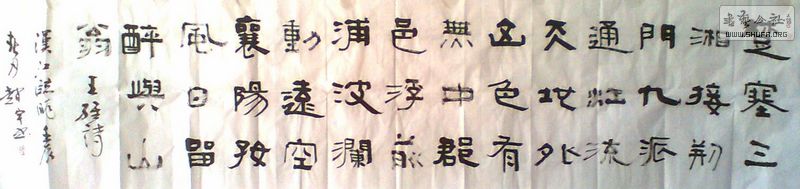 楚塞三
湘接荊
門九派
通江流
天地外
山色有
無中郡
邑浮前
浦波瀾
動遠空
襄陽好
風日留
醉與山
翁 王維詩
漢江臨眺
月
书法公社
WWW.SHUFA.ORG